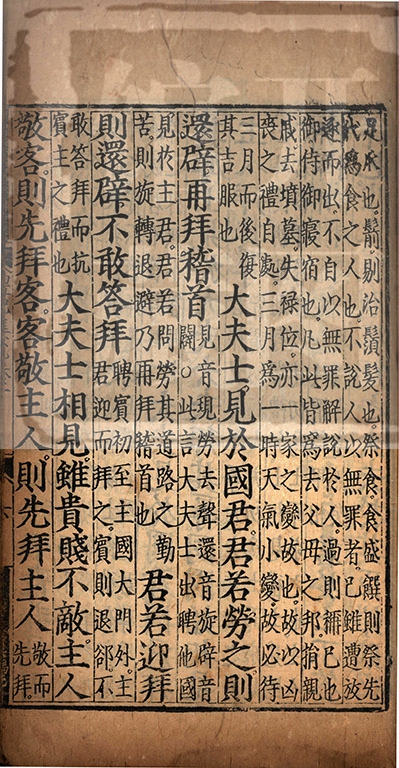 足爪也。鬋剔治鬚髮也。祭食食盛饌則祭先
代爲食之人也不說人以無罪者己雖遭放
逐而出。不自以無罪解說於人。過則稱己也
御侍御寢宿也。凡此皆爲去父母之邦捐親
戚去墳墓失祿位亦一家之變故也。故以凶
喪之禮自處。三月爲一時天氣小變故必待
三月而後復
其吉服也
大夫士見於國君。君若勞之則
還辟再拜稽首
見音現勞去聲還音旋辟音
闢○此言大夫士出聘他國
見於主君。君若問勞其道路之勤
苦。則旋轉退避乃再拜稽首也
君若迎拜
則還辟不敢答拜
聘賓初至主國大門外。主
君迎而拜之。賓則退郤不
敢答拜而抗
賓主之禮也
大夫士相見。雖貴賤不敵。主人
敬客。則先拜客。客敬主人。則先拜主人
敬而
先拜。